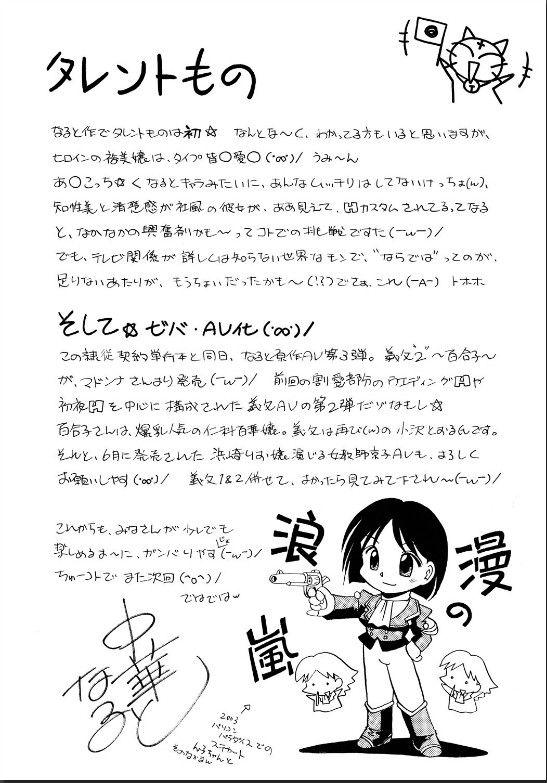 タレントもの
なると作でタレントものは初☆　なんとな〜く、わかってる方もいると思いますが、
ヒロインの裕美嬢は、タイプ皆○愛○(･∞･)/ うみ〜ん
あ○こっち☆くなるとキャラみたいに、あんなしいッチリはしてないけっちょ(ω)、
知性美と清楚感が社風の彼女が、ああ見えて、カスタムされてるってなる
と、なかなかの興奮剤かも〜ってコトでの挑戦ですた(ーωー)/
でも、テレビ関係が詳しくは知らない世界なモンで、"ならでは"ってのが、
足りないあたりが、もうちょいだったかも〜(!?)でてぁ、これ(ーAー) トホホ
そして☆ ゼバ・AV化(･∞･)/
この隷従契約単行本と同日、なると原作AV第3弾。義父2〜百合子〜
が、マドンナさんより発売(ーωー)/ 前回の割愛部のウエディングや
初夜を中心に構成された義父AVの第2弾だゾなもし☆
百合子さんは、爆乳人気の仁科百華嬢。義父は再び(ω)の小沢とおるんです。
それと、6月に発売された浜崎りお嬢演じる女教師京子AVも、よろしく
お願いしやす(･∞･)/ 義父1&2併せて、よかったら見てみて下さ〜(ーωー)/
これからも、みなさんが少しでも
楽しめるよーに、ガンバりやす(ーωー)/
じょ
ちゅーコトでまた次回(^o^)/
でわでわω
浪漫の嵐
中華なると
2003
パソコン
パラダイスでの
ステカート
んろちゃんと